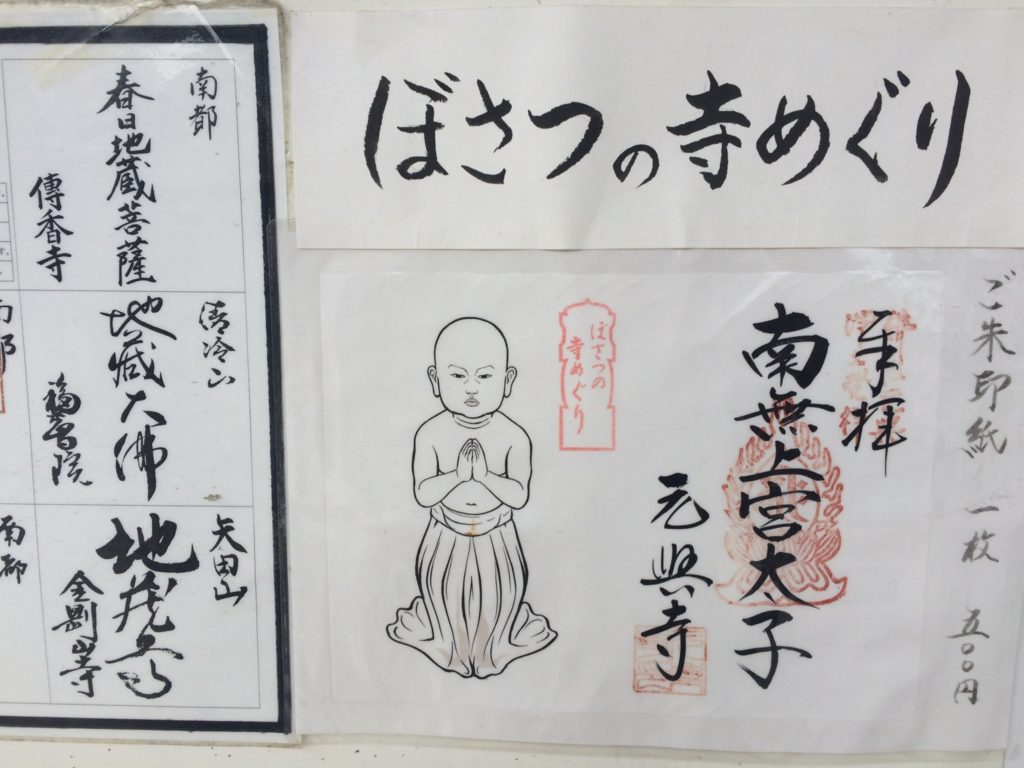 ぼさつの寺めぐり
ご朱印紙 一枚 五〇〇円
奉拝
南無上宮太子
元興寺
ぼさつの
寺めぐり
南都
春日地蔵菩薩
傳香寺
清冷山
地蔵大佛
福智院
矢田山
地蔵尊
金剛山寺
南都
南都